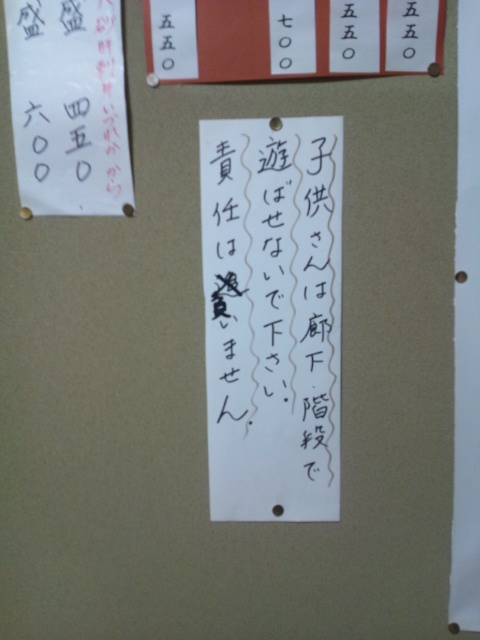 子供さんは廊下・階段で
遊ばせないで下さい。
責任は負いません。
五五〇
五五〇
七〇〇
五五〇
盛 四五〇
盛 六〇〇